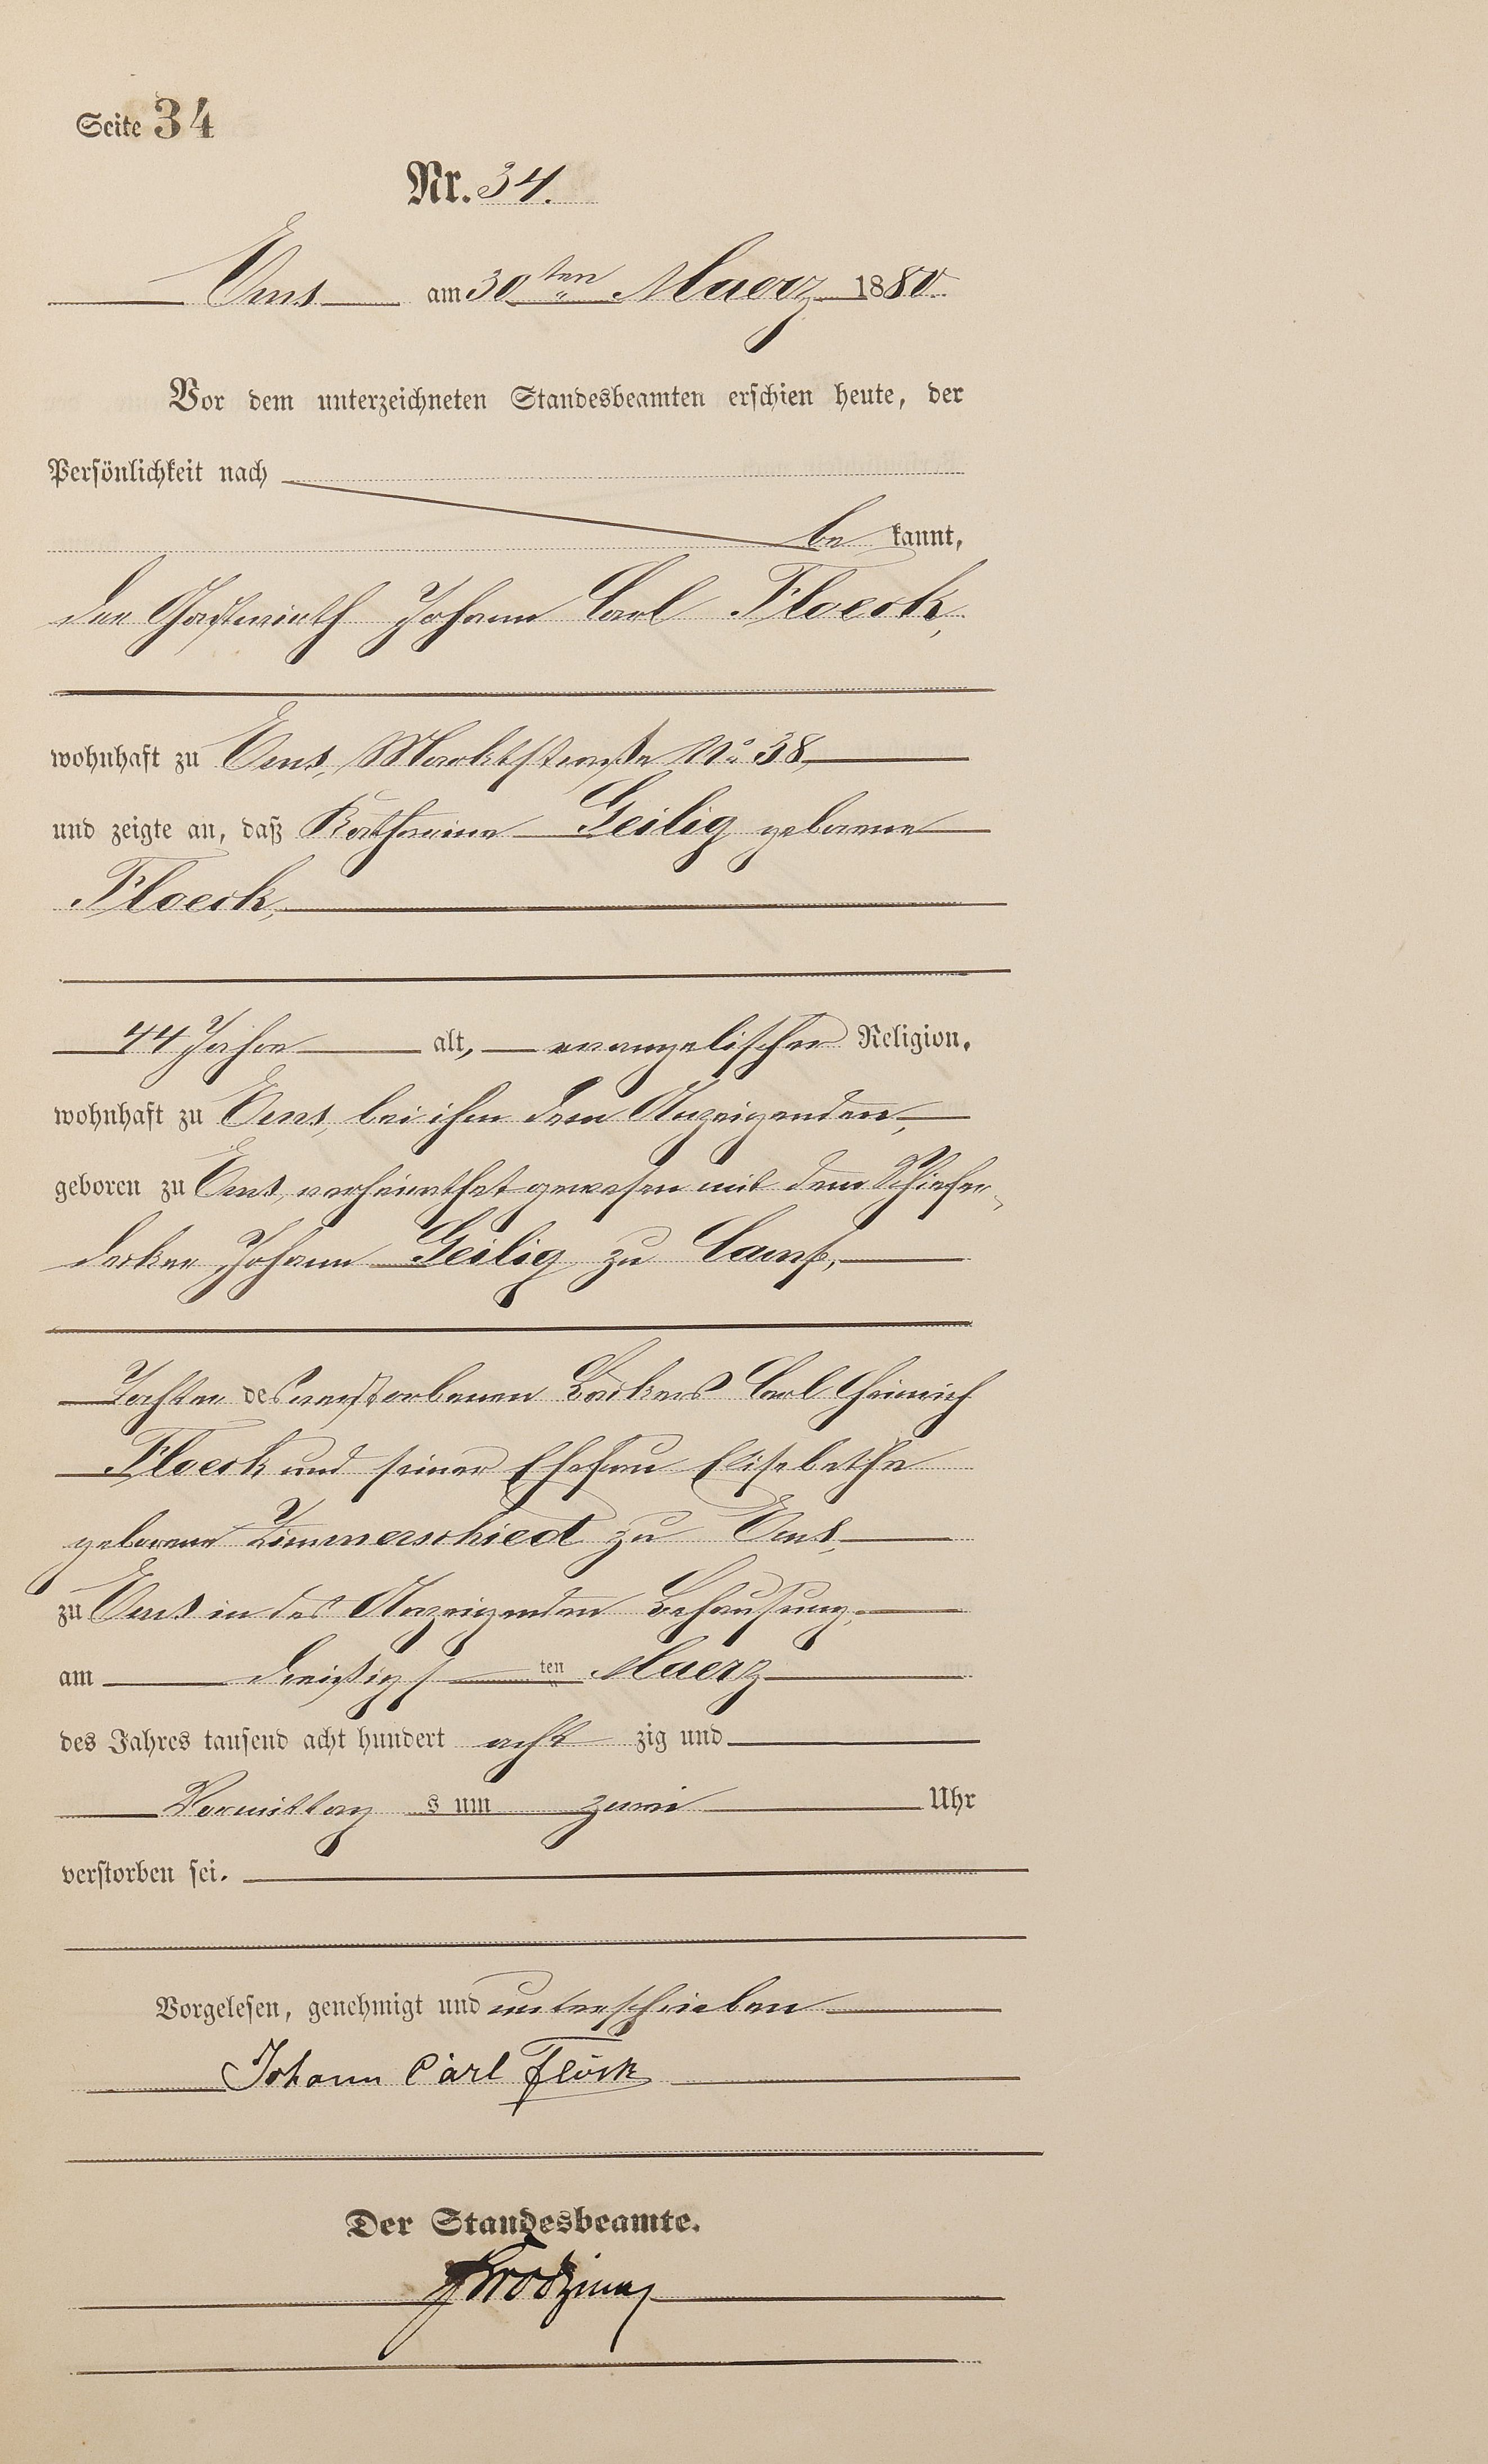 Seite 34
Nr. 34.
Ems am 30ten Maerz 1880.
Vor dem unterzeichneten Standesbeamten erschien heute, der
Persönlichkeit nach
be kannt,
der Gastwirth Johann Carl Floeck,
wohnhaft zu Ems, Marktstraße No. 38,
und zeigte an, daß Katharina Geilig geborene
Floeck,
44 Jahre alt, evangelischer Religion,
wohnhaft zu Ems, bei ihm dem Anzeigenden,
geboren zu Ems, verheirathet gewesen mit dem Schiefer-
decker Johann Geilig zu Camp,
Tochter des verstorbenen Bäckers Carl Heinrich
Floeck und seiner Ehefrau Elisabethe
geborene Zimmerschied zu Ems,
zu Ems in des Anzeigenden Behausung,
am dreißigs ten Maerz
des Jahres tausend acht hundert acht zig und
Vormittag s um zwei Uhr
verstorben sei.
Vorgelesen, genehmigt und unterschrieben
Johann Carl Flöck
Der Standesbeamte.